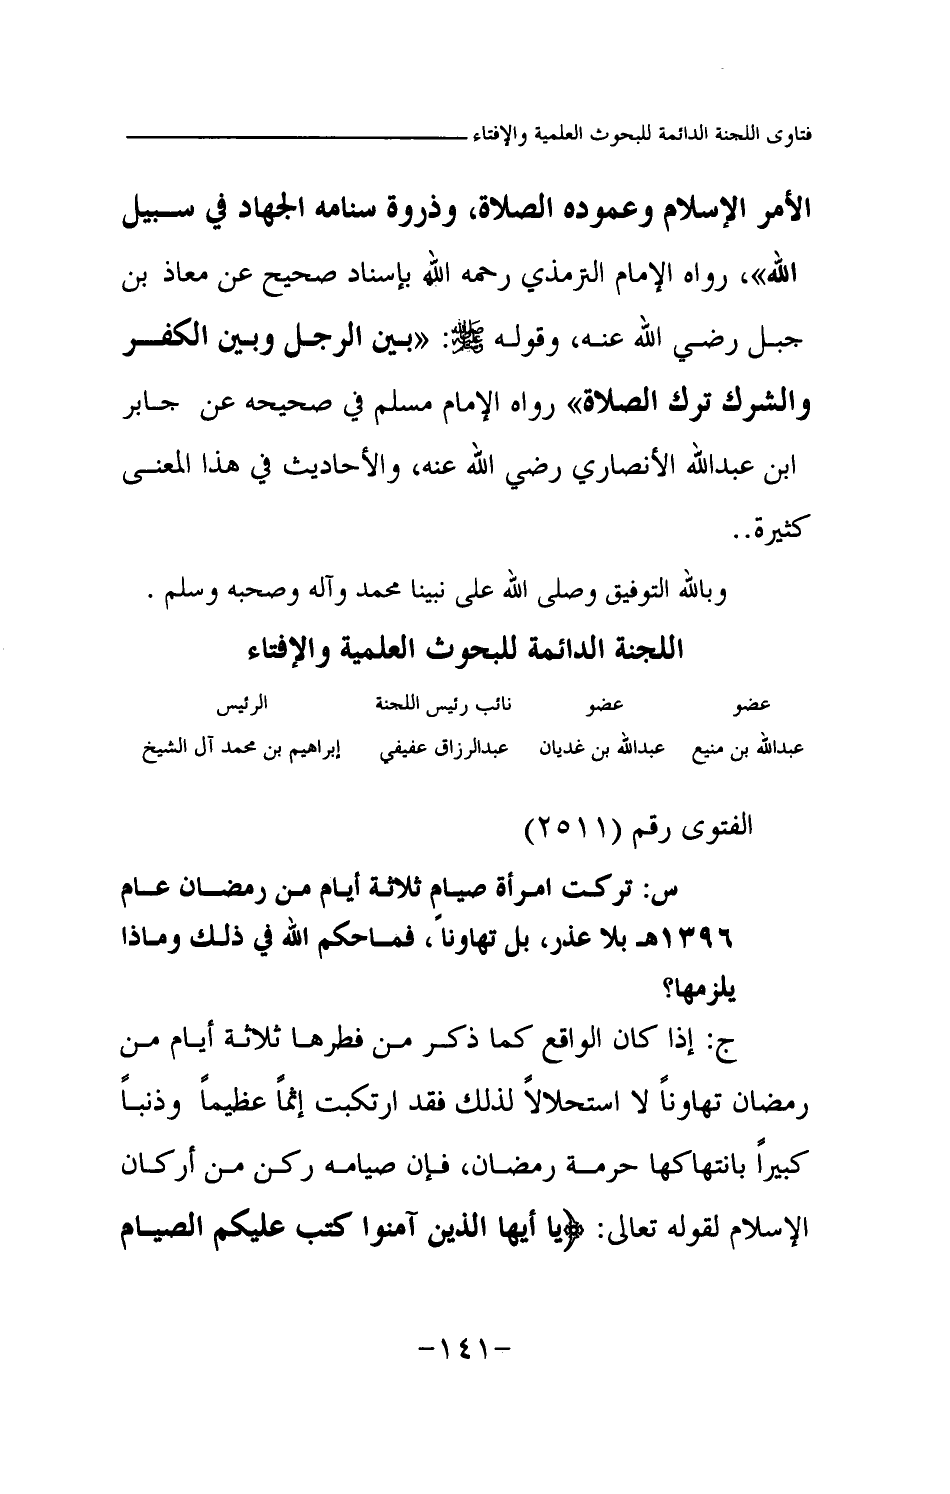 فتاوى اللجنة الدائمة للبحوث العلمية والإفتاء
الأمر الإسلام وعموده الصلاة، وذروة سنامه الجهاد في سبيل
الله»، رواه الإمام الترمذي رحمه الله بإسناد صحيح عن معاذ بن
جبل رضي الله عنه، وقوله ﷺ: «بين الرجل وبين الكفر
والشرك ترك الصلاة» رواه الإمام مسلم في صحيحه عن جابر
ابن عبدالله الأنصاري رضي الله عنه، والأحاديث في هذا المعنى
كثيرة..
وبالله التوفيق وصلى الله على نبينا محمد وآله وصحبه وسلم .
اللجنة الدائمة للبحوث العلمية والإفتاء
عضو عضو نائب رئيس اللجنة الرئيس
عبدالله بن منيع عبدالله بن غديان عبدالرزاق عفيفي إبراهيم بن محمد آل الشيخ
الفتوى رقم (٢٥١١)
س: تركت امرأة صيام ثلاثة أيام من رمضان عام
١٣٩٦هـ بلا عذر، بل تهاوناً، فماحكم الله في ذلك وماذا
يلزمها؟
ج: إذا كان الواقع كما ذكر من فطرها ثلاثة أيام من
رمضان تهاوناً لا استحلالاً لذلك فقد ارتكبت إثماً عظيماً وذنباً
كبيراً بانتهاكها حرمة رمضان، فإن صيامه ركن من أركان
الإسلام لقوله تعالى: ﴿يا أيها الذين آمنوا كتب عليكم الصيام
-١٤١-